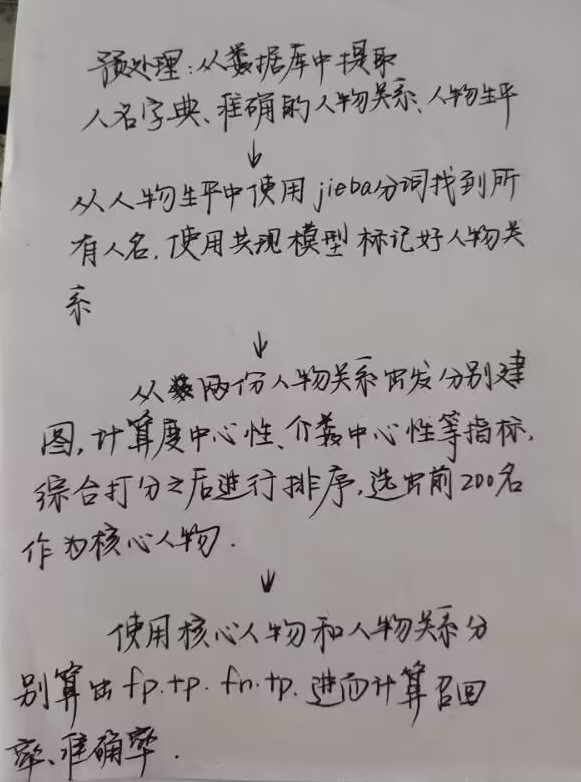 预处理:从数据库中提取
人名字典、准确的人物关系、人物生平
↓
从人物生平中使用jieba分词找到所
有人名,使用共现模型标记好人物关
系
↓
从两份人物关系出发分别建
图,计算度中心性、介数中心性等指标,
综合打分之后进行排序,选出前200名
作为核心人物.
↓
使用核心人物和人物关系分
别算出fp.tp.fn.tp.进而计算召回
率、准确率.